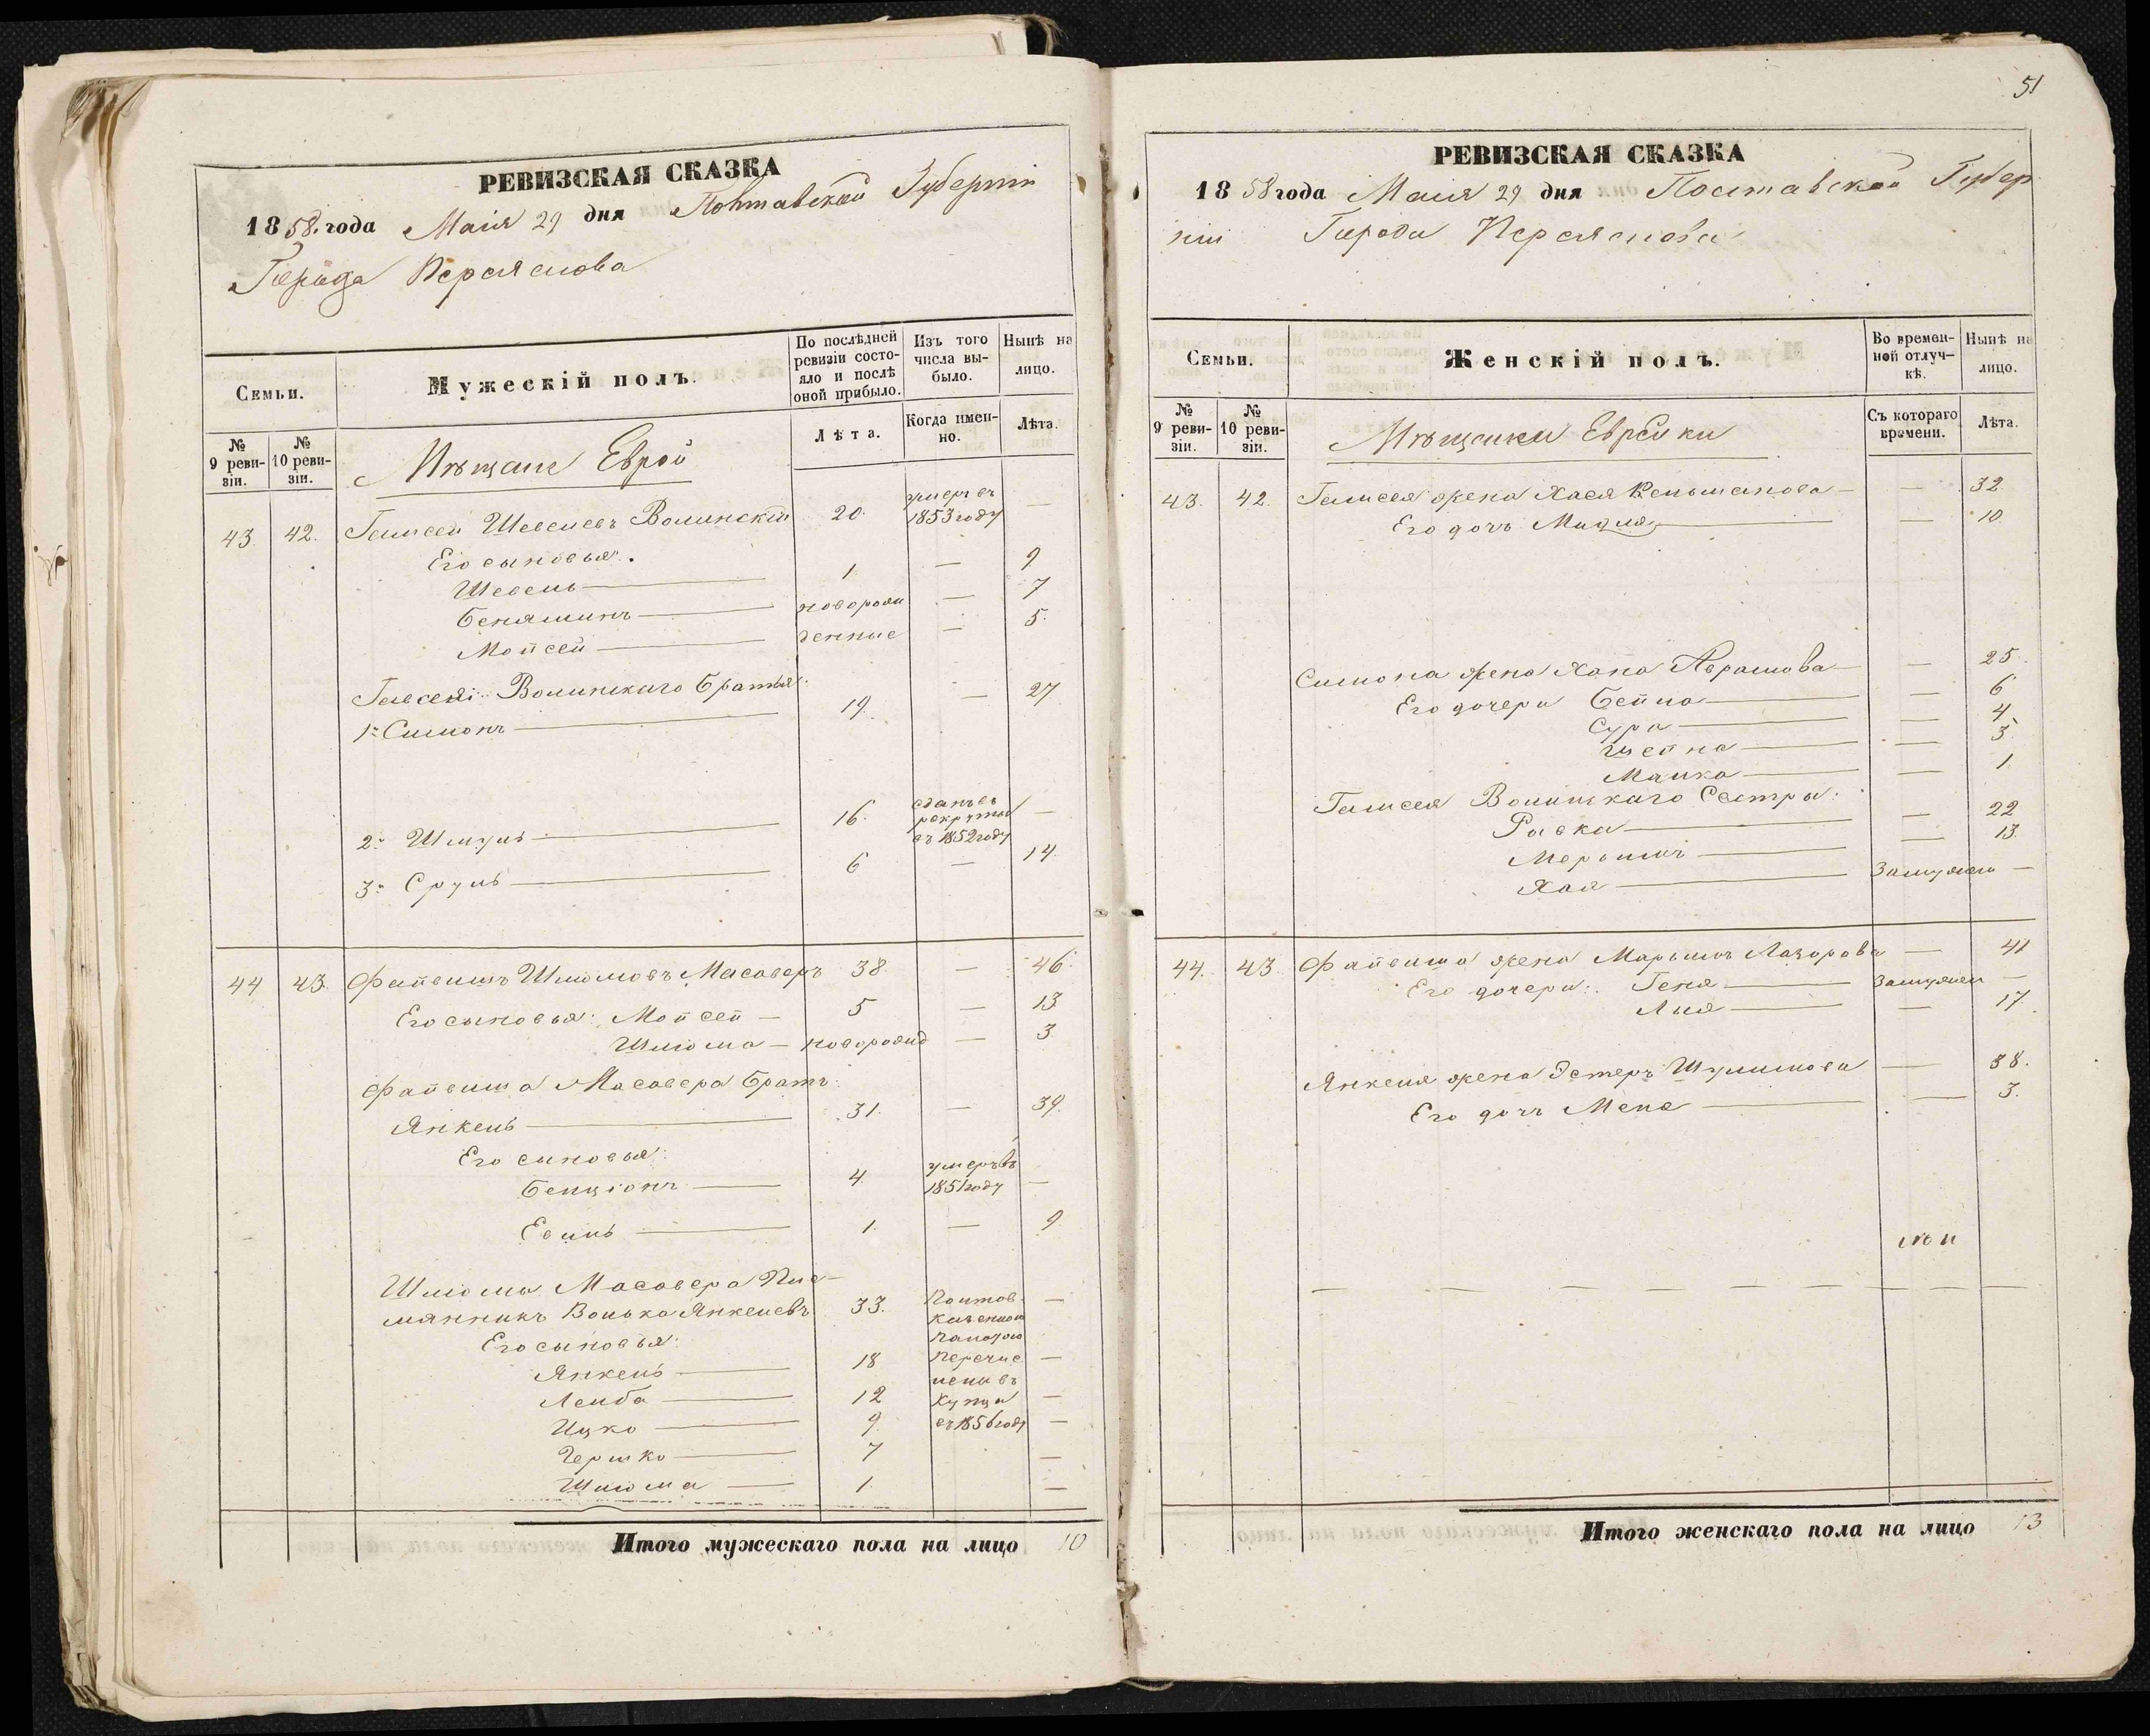 РЕВИЗСКАЯ СКАЗКА
1858. года Маія 29 дня Полтавской Губерніи
Города Переяслова
Семьи.
Мужескій полъ.
По послѣдней ревизіи состояло и послѣ оной прибыло.
Изъ того числа выбыло.
Нынѣ на лицо.
№ 9 ревизіи.
№ 10 ревизіи.
Мѣщане Евреи
Лѣта.
Когда именно.
Лѣта.
43. 42. Шевелевъ Волинскій 20. умеръ въ 1853 году —
Его сыновья:
Шевель 1 — 9
Беняминъ новорож — 7
Мойсей денные — 5.
Волинскаго Братья:
1й Симонъ 19. — 27
2й Шмуль 16. сданъ въ рекруты въ 1852 году —
3й Сруль 6 — 14.
44 43. Файвишъ Шліомовъ Масаверъ 38 — 46.
Его сыновья: Мойсей — 5 — 13
Шліома — новорожд — 3
Файвиша Масавера Братъ:
Янкель 31. — 39.
Его сыновья:
Бенціонъ 4. умеръ въ 1851 году —
Евель 1. — 9
Шліомы Масавера Пле-
мянникъ Волько Янкелевъ 33. —
Его сыновья:
Янкель 18 —
Лейба 12 —
Ицко 9. —
Гершко 7 —
Шліома 1. —
Полтав. Казенною Палатою перечислены въ купцы въ 1856 году
Итого мужескаго пола на лицо 10
51
РЕВИЗСКАЯ СКАЗКА
1858 года Маія 29 дня Полтавской Губер
ніи Города Переяслова
Семьи.
Женскій полъ.
Во временной отлучкѣ.
Нынѣ на лицо.
№ 9 ревизіи.
№ 10 ревизіи.
Мѣщанки Еврейки
Съ котораго времени.
Лѣта.
43. 42. жена Хася — 32.
Его дочь — 10.
Симона жена Хана Абрамова — 25.
Его дочери Бейла — 6
Сура — 4
Шейна — 3
Малка — 1
Волинскаго Сестры:
Ривка — 22
Мерьямъ — 13.
Хая Замужемъ —
44. 43 Файвиша жена Марьямъ Лазорова — 41
Его дочери: Геня Замужем —
Лия — 17.
Янкеля жена Эстеръ Шулимова — 38.
Его дочь — 3.
Итого женскаго пола на лицо 13